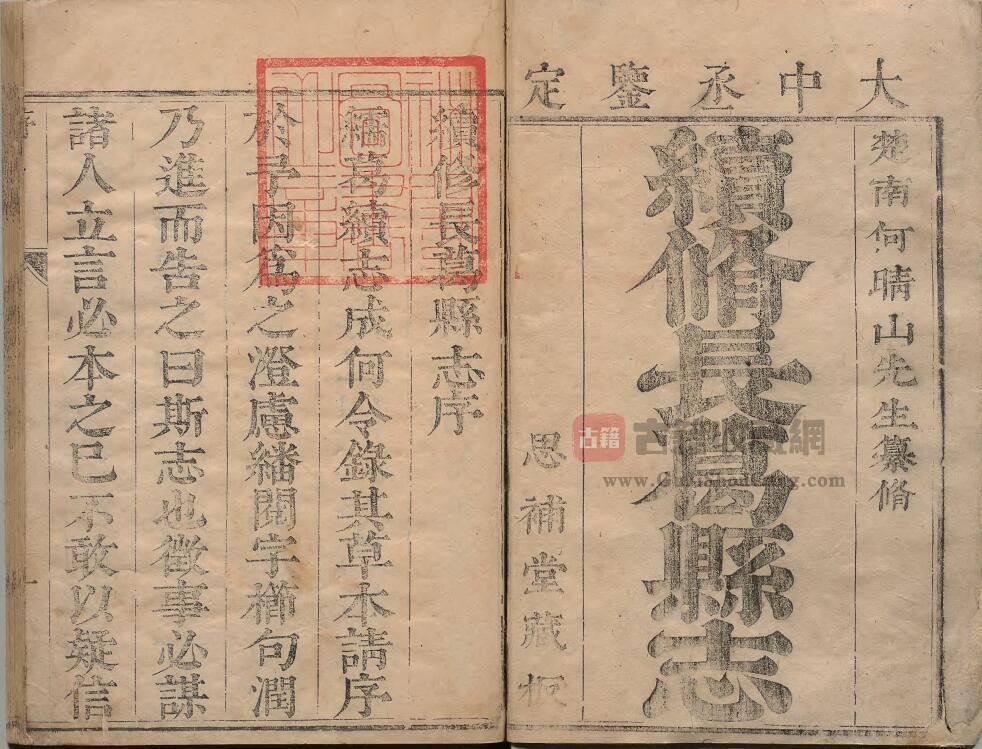 大中丞鑒定
楚南何晴山先生纂脩
續脩長葛縣志
思補堂藏板
續修長葛縣志序
繻葛續志成何令錄其草本請序
於予因爲之澄慮繙閱字櫛句潤
乃進而告之曰斯志也徵事必謀
諸人立言必本之已不敢以疑信
古籍
www.Gujishoucang.com